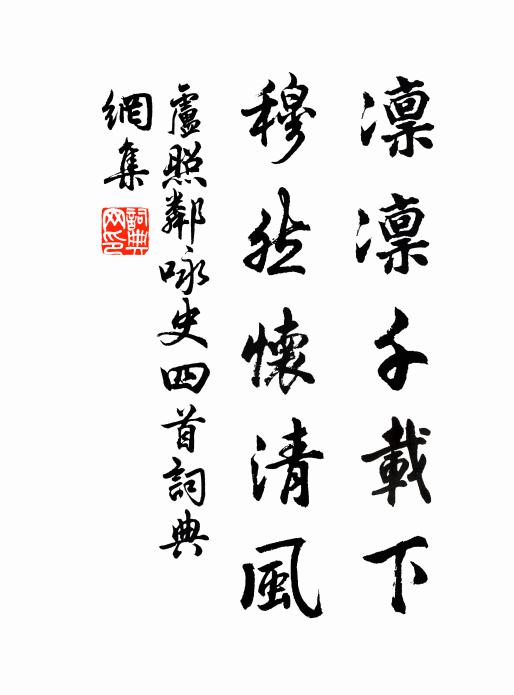 凛凛千載下
穆然懷清風
盧照鄰咏史四首詞典
網集
詞典网印